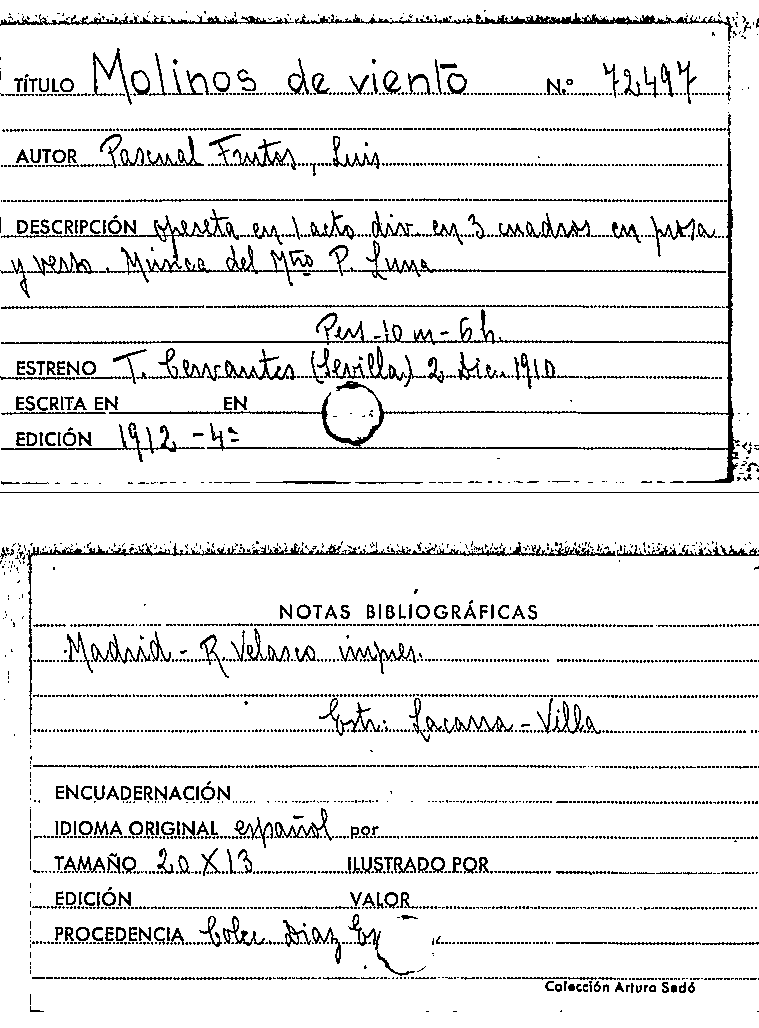 TÍTULO Molinos de viento N.º 72497
AUTOR Pascual Frutos, Luis
DESCRIPCIÓN opereta en 1 acto div. en 3 cuadros en prosa
y verso. Música del Mtro P. Luna
Pers-10 m-6 h.
ESTRENO T. Cervantes (Sevilla) 2 Dic. 1910
ESCRITA EN EN
EDICIÓN 1912 -4ª
NOTAS BIBLIOGRÁFICAS
Madrid - R Velasco impres.
Estr: Lacarra - Villa
ENCUADERNACIÓN
IDIOMA ORIGINAL español por
TAMAÑO 20 X 13 ILUSTRADO POR
EDICIÓN VALOR
PROCEDENCIA Colec. Diaz
Colección Arturo Sedó